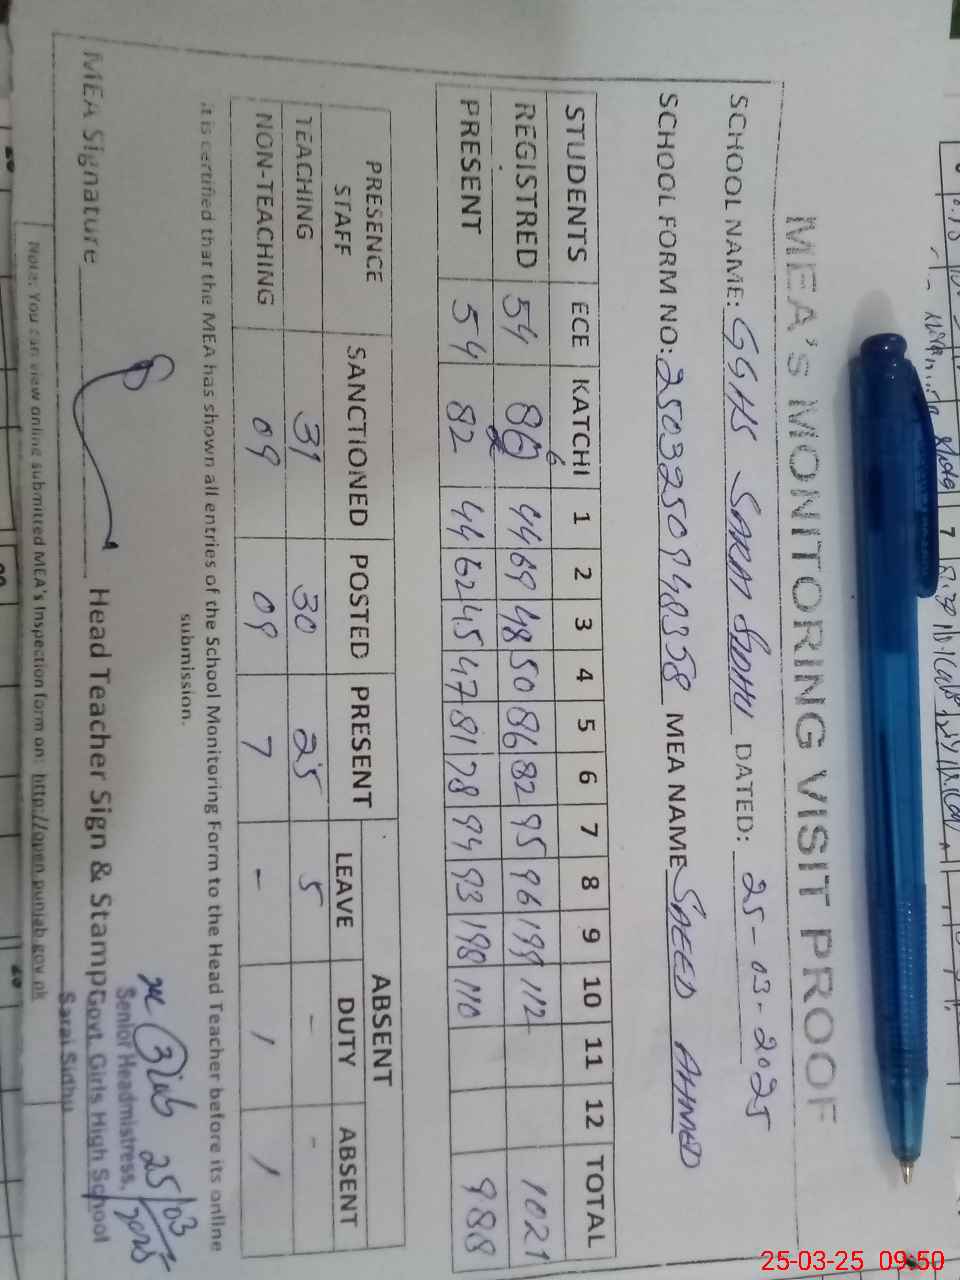 MEA'S MONITORING VISIT PROOF
SCHOOL NAME: GGHS SARAI SIDHU DATED: 25-03-2025
SCHOOL FORM NO: 25032509948358 MEA NAME SAEED AHMED
STUDENTS ECE KATCHI 1 2 3 4 5 6 7 8 9 10 11 12 TOTAL
REGISTRED 54 86 44 69 48 50 86 82 95 96 199 112 1021
PRESENT 54 82 44 62 45 47 81 78 94 93 198 110 988
PRESENCE STAFF SANCTIONED POSTED PRESENT ABSENT
LEAVE DUTY ABSENT
TEACHING 31 30 25 5 - -
NON-TEACHING 09 09 7 - 1 1
It is certified that the MEA has shown all entries of the School Monitoring Form to the Head Teacher before its online
submission.
25/03/2025
MEA Signature Head Teacher Sign & Stamp
Senior Headmistress,
Govt. Girls High School
Sarai Sidhu
Note: You can view online submitted MEA's Inspection form on: http://open.punjab.gov.pk
25-03-25 09:50